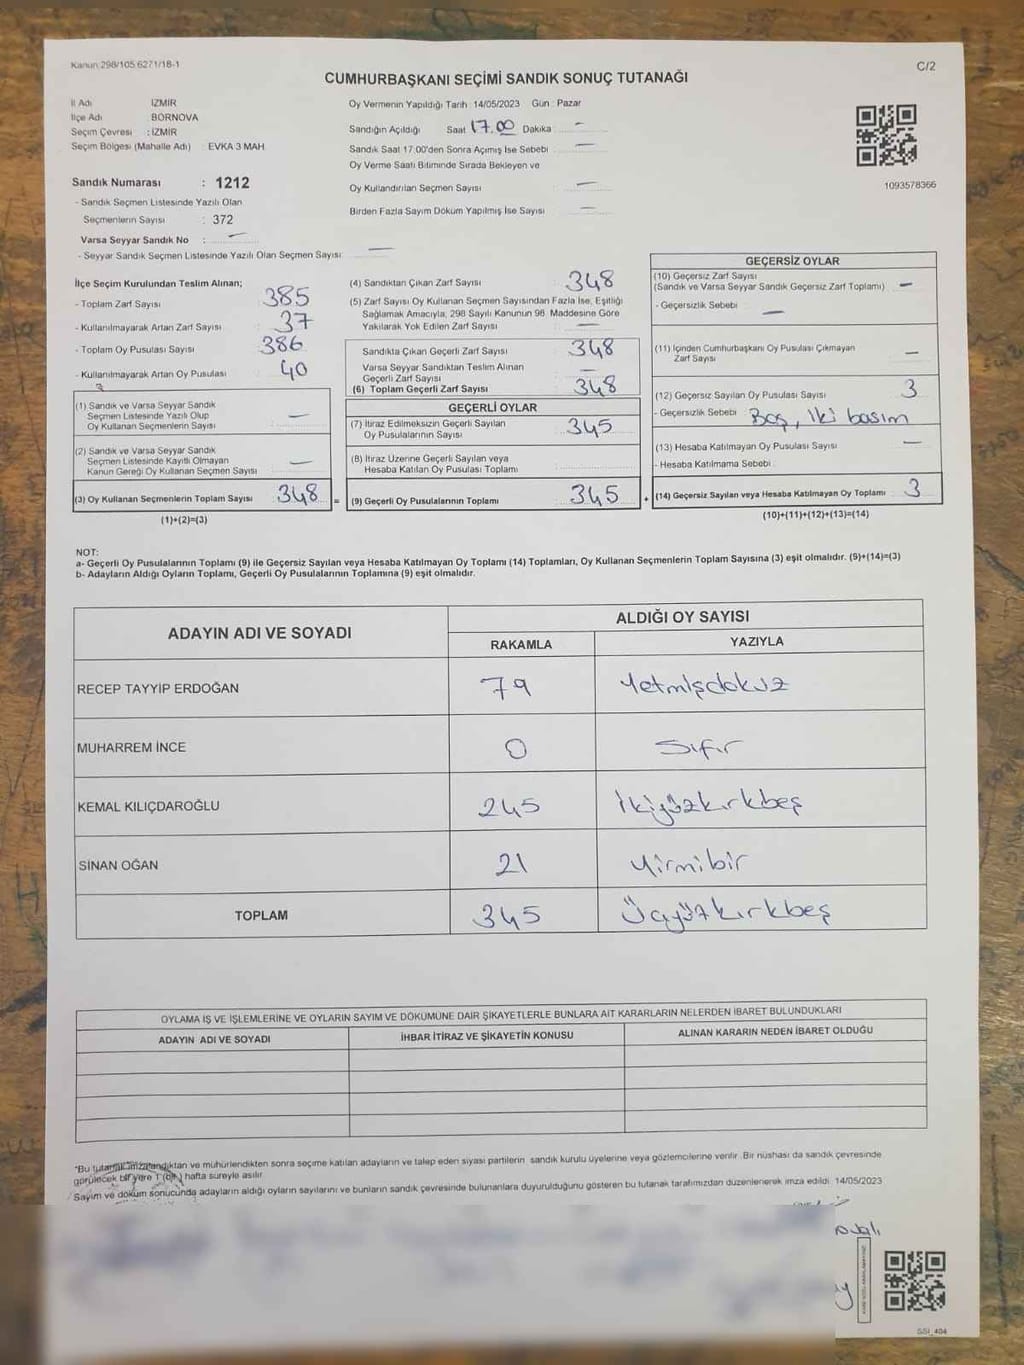 Kanun:298/105.6271/18-1
C/2
CUMHURBAŞKANI SEÇİMİ SANDIK SONUÇ TUTANAĞI
İl Adı İZMİR
İlçe Adı : BORNOVA
Seçim Çevresi : İZMİR
Seçim Bölgesi (Mahalle Adı) : EVKA 3 MAH.
Sandık Numarası : 1212
- Sandık Seçmen Listesinde Yazılı Olan
Seçmenlerin Sayısı : 372
Varsa Seyyar Sandık No : —
- Seyyar Sandık Seçmen Listesinde Yazılı Olan Seçmen Sayısı: —
Oy Vermenin Yapıldığı Tarih : 14/05/2023 Gün : Pazar
Sandığın Açıldığı Saat 17.00 Dakika : —
Sandık Saat 17:00'den Sonra Açımış İse Sebebi : —
Oy Verme Saati Bitiminde Sırada Bekleyen ve
Oy Kullandırılan Seçmen Sayısı : —
Birden Fazla Sayım Döküm Yapılmış İse Sayısı : —
1093578366
İlçe Seçim Kurulundan Teslim Alınan;
- Toplam Zarf Sayısı : 385
- Kullanılmayarak Artan Zarf Sayısı : 37
- Toplam Oy Pusulası Sayısı : 386
- Kullanılmayarak Artan Oy Pusulası : 40
(1) Sandık ve Varsa Seyyar Sandık
Seçmen Listesinde Yazılı Olup
Oy Kullanan Seçmenlerin Sayısı —
(2) Sandık ve Varsa Seyyar Sandık
Seçmen Listesinde Kayıtlı Olmayan
Kanun Gereği Oy Kullanan Seçmen Sayısı —
(3) Oy Kullanan Seçmenlerin Toplam Sayısı 348 =
(1)+(2)=(3)
(4) Sandıktan Çıkan Zarf Sayısı 348
(5) Zarf Sayısı Oy Kullanan Seçmen Sayısından Fazla İse, Eşitliği
Sağlamak Amacıyla, 298 Sayılı Kanunun 98. Maddesine Göre
Yakılarak Yok Edilen Zarf Sayısı —
Sandıkta Çıkan Geçerli Zarf Sayısı 348
Varsa Seyyar Sandıktan Teslim Alınan
Geçerli Zarf Sayısı —
(6) Toplam Geçerli Zarf Sayısı 348
GEÇERLİ OYLAR
(7) İtiraz Edilmeksizin Geçerli Sayılan
Oy Pusulalarının Sayısı 345
(8) İtiraz Üzerine Geçerli Sayılan veya
Hesaba Katılan Oy Pusulası Toplamı
(9) Geçerli Oy Pusulalarının Toplamı 345 +
GEÇERSİZ OYLAR
(10) Geçersiz Zarf Sayısı
(Sandık ve Varsa Seyyar Sandık Geçersiz Zarf Toplamı) —
- Geçersizlik Sebebi —
(11) İçinden Cumhurbaşkanı Oy Pusulası Çıkmayan
Zarf Sayısı —
(12) Geçersiz Sayılan Oy Pusulası Sayısı 3
- Geçersizlik Sebebi Boş, iki basım
(13) Hesaba Katılmayan Oy Pusulası Sayısı —
- Hesaba Katılmama Sebebi
(14) Geçersiz Sayılan veya Hesaba Katılmayan Oy Toplamı 3
(10)+(11)+(12)+(13)=(14)
NOT:
a- Geçerli Oy Pusulalarının Toplamı (9) ile Geçersiz Sayılan veya Hesaba Katılmayan Oy Toplamı (14) Toplamları, Oy Kullanan Seçmenlerin Toplam Sayısına (3) eşit olmalıdır. (9)+(14)=(3)
b- Adayların Aldığı Oyların Toplamı, Geçerli Oy Pusulalarının Toplamına (9) eşit olmalıdır.
ADAYIN ADI VE SOYADI
ALDIĞI OY SAYISI
RAKAMLA YAZIYLA
RECEP TAYYİP ERDOĞAN 79 Yetmişdokuz
MUHARREM İNCE 0 Sıfır
KEMAL KILIÇDAROĞLU 245 İkiyüzkırkbeş
SİNAN OĞAN 21 Yirmibir
TOPLAM 345 Üçyüzkırkbeş
OYLAMA İŞ VE İŞLEMLERİNE VE OYLARIN SAYIM VE DÖKÜMÜNE DAİR ŞİKAYETLERLE BUNLARA AİT KARARLARIN NELERDEN İBARET BULUNDUKLARI
ADAYIN ADI VE SOYADI İHBAR İTİRAZ VE ŞİKAYETİN KONUSU ALINAN KARARIN NEDEN İBARET OLDUĞU
*Bu tutanak imzalandıktan ve mühürlendikten sonra seçime katılan adayların ve talep eden siyasi partilerin sandık kurulu üyelerine veya gözlemcilerine verilir. Bir nüshası da sandık çevresinde
görülecek bir yere 1 (bir) hafta süreyle asılır.
Sayım ve döküm sonucunda adayların aldığı oyların sayılarını ve bunların sandık çevresinde bulunanlara duyurulduğunu gösteren bu tutanak tarafımızdan düzenlenerek imza edildi. 14/05/2023
SSI_404